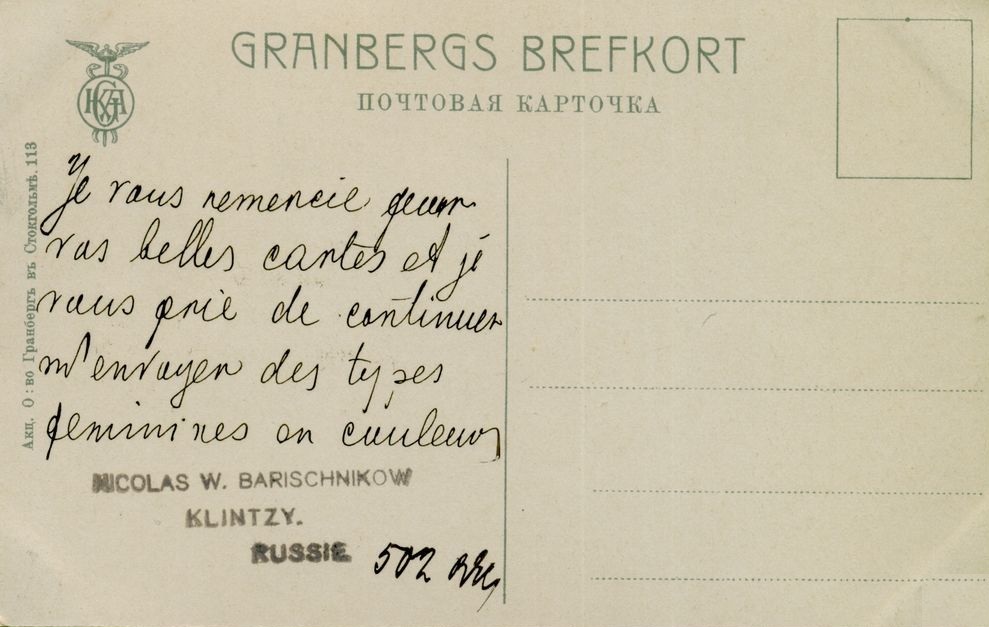 GRANBERGS BREFKORT
ПОЧТОВАЯ КАРТОЧКА
HKGA
Акц. О:во Гранбергъ въ Стокгольмѣ. 113
Je vous remercie pour
vos belles cartes et je
vous prie de continuer
m'envoyer des types
feminines en couleurs
NICOLAS W. BARISCHNIKOW
KLINTZY.
RUSSIE
502